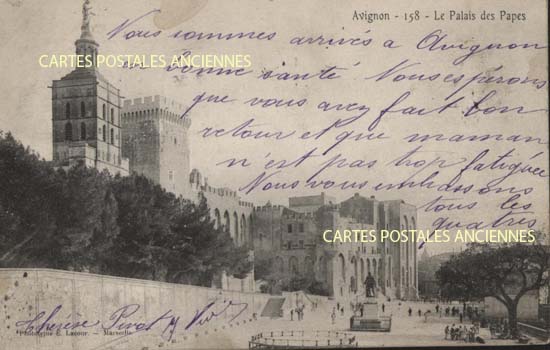 Avignon - 158 - Le Palais des Papes
Nous sommes arrivés a Avignon
CARTES POSTALES ANCIENNES
en bonne santé. Nous espérons
que vous avez fait bon
retour et que maman
n'est pas trop fatiguée
Nous vous embrassons
tous les
quatres
CARTES POSTALES ANCIENNES
Thérèse
Phototypie E. Lacour. - Marseille